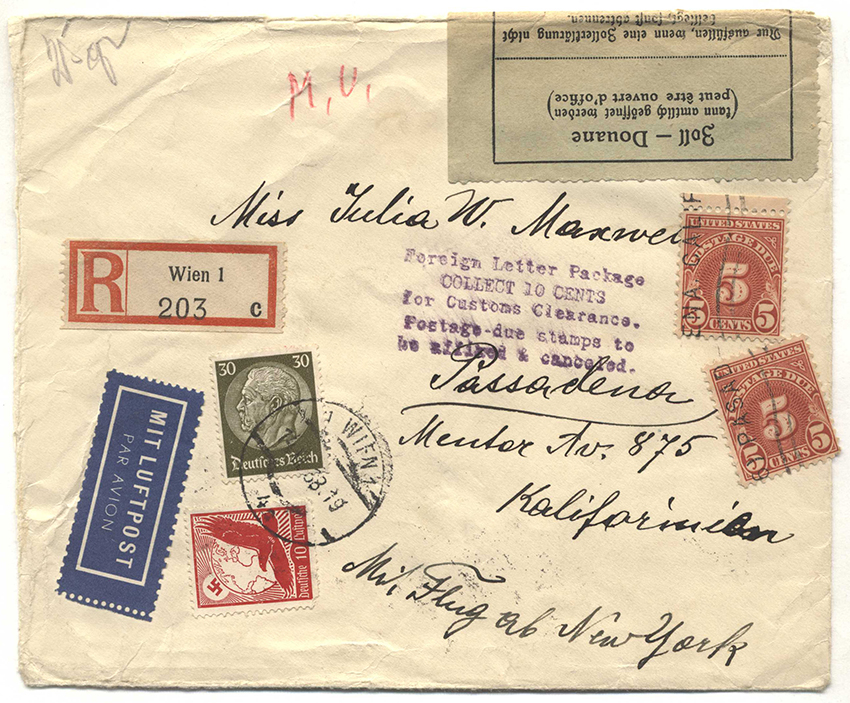 M. V.
Nur ausfüllen, wenn eine Zollerklärung nicht
beiliegt, sonst abtrennen.
Zoll — Douane
(kann amtlich geöffnet werden)
(peut être ouvert d'office)
Miss Julia W. Maxwell
R
Wien 1
203 c
Foreign Letter Package
COLLECT 10 CENTS
for Customs Clearance.
Postage-due stamps to
be affixed & canceled.
UNITED STATES
POSTAGE DUE
5
5 CENTS 5
UNITED STATES
POSTAGE DUE
5
5 CENTS 5
PASA
CALIF
Passadena
Mentor Av. 875
Kalifornien
Mit Flug ab New York
30 30
Deutsches Reich
WIEN 1
MIT LUFTPOST
PAR AVION
Deutsche 10 Luftpost